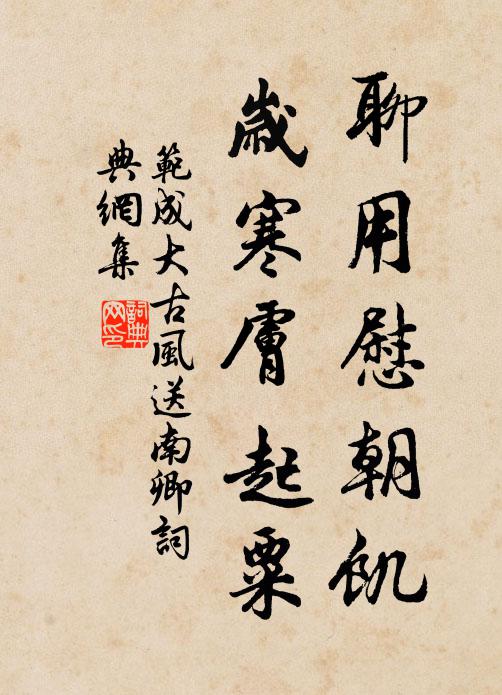 聊用慰朝飢
歲寒膚起粟
範成大古風送南卿詞
典網集
詞典
网印